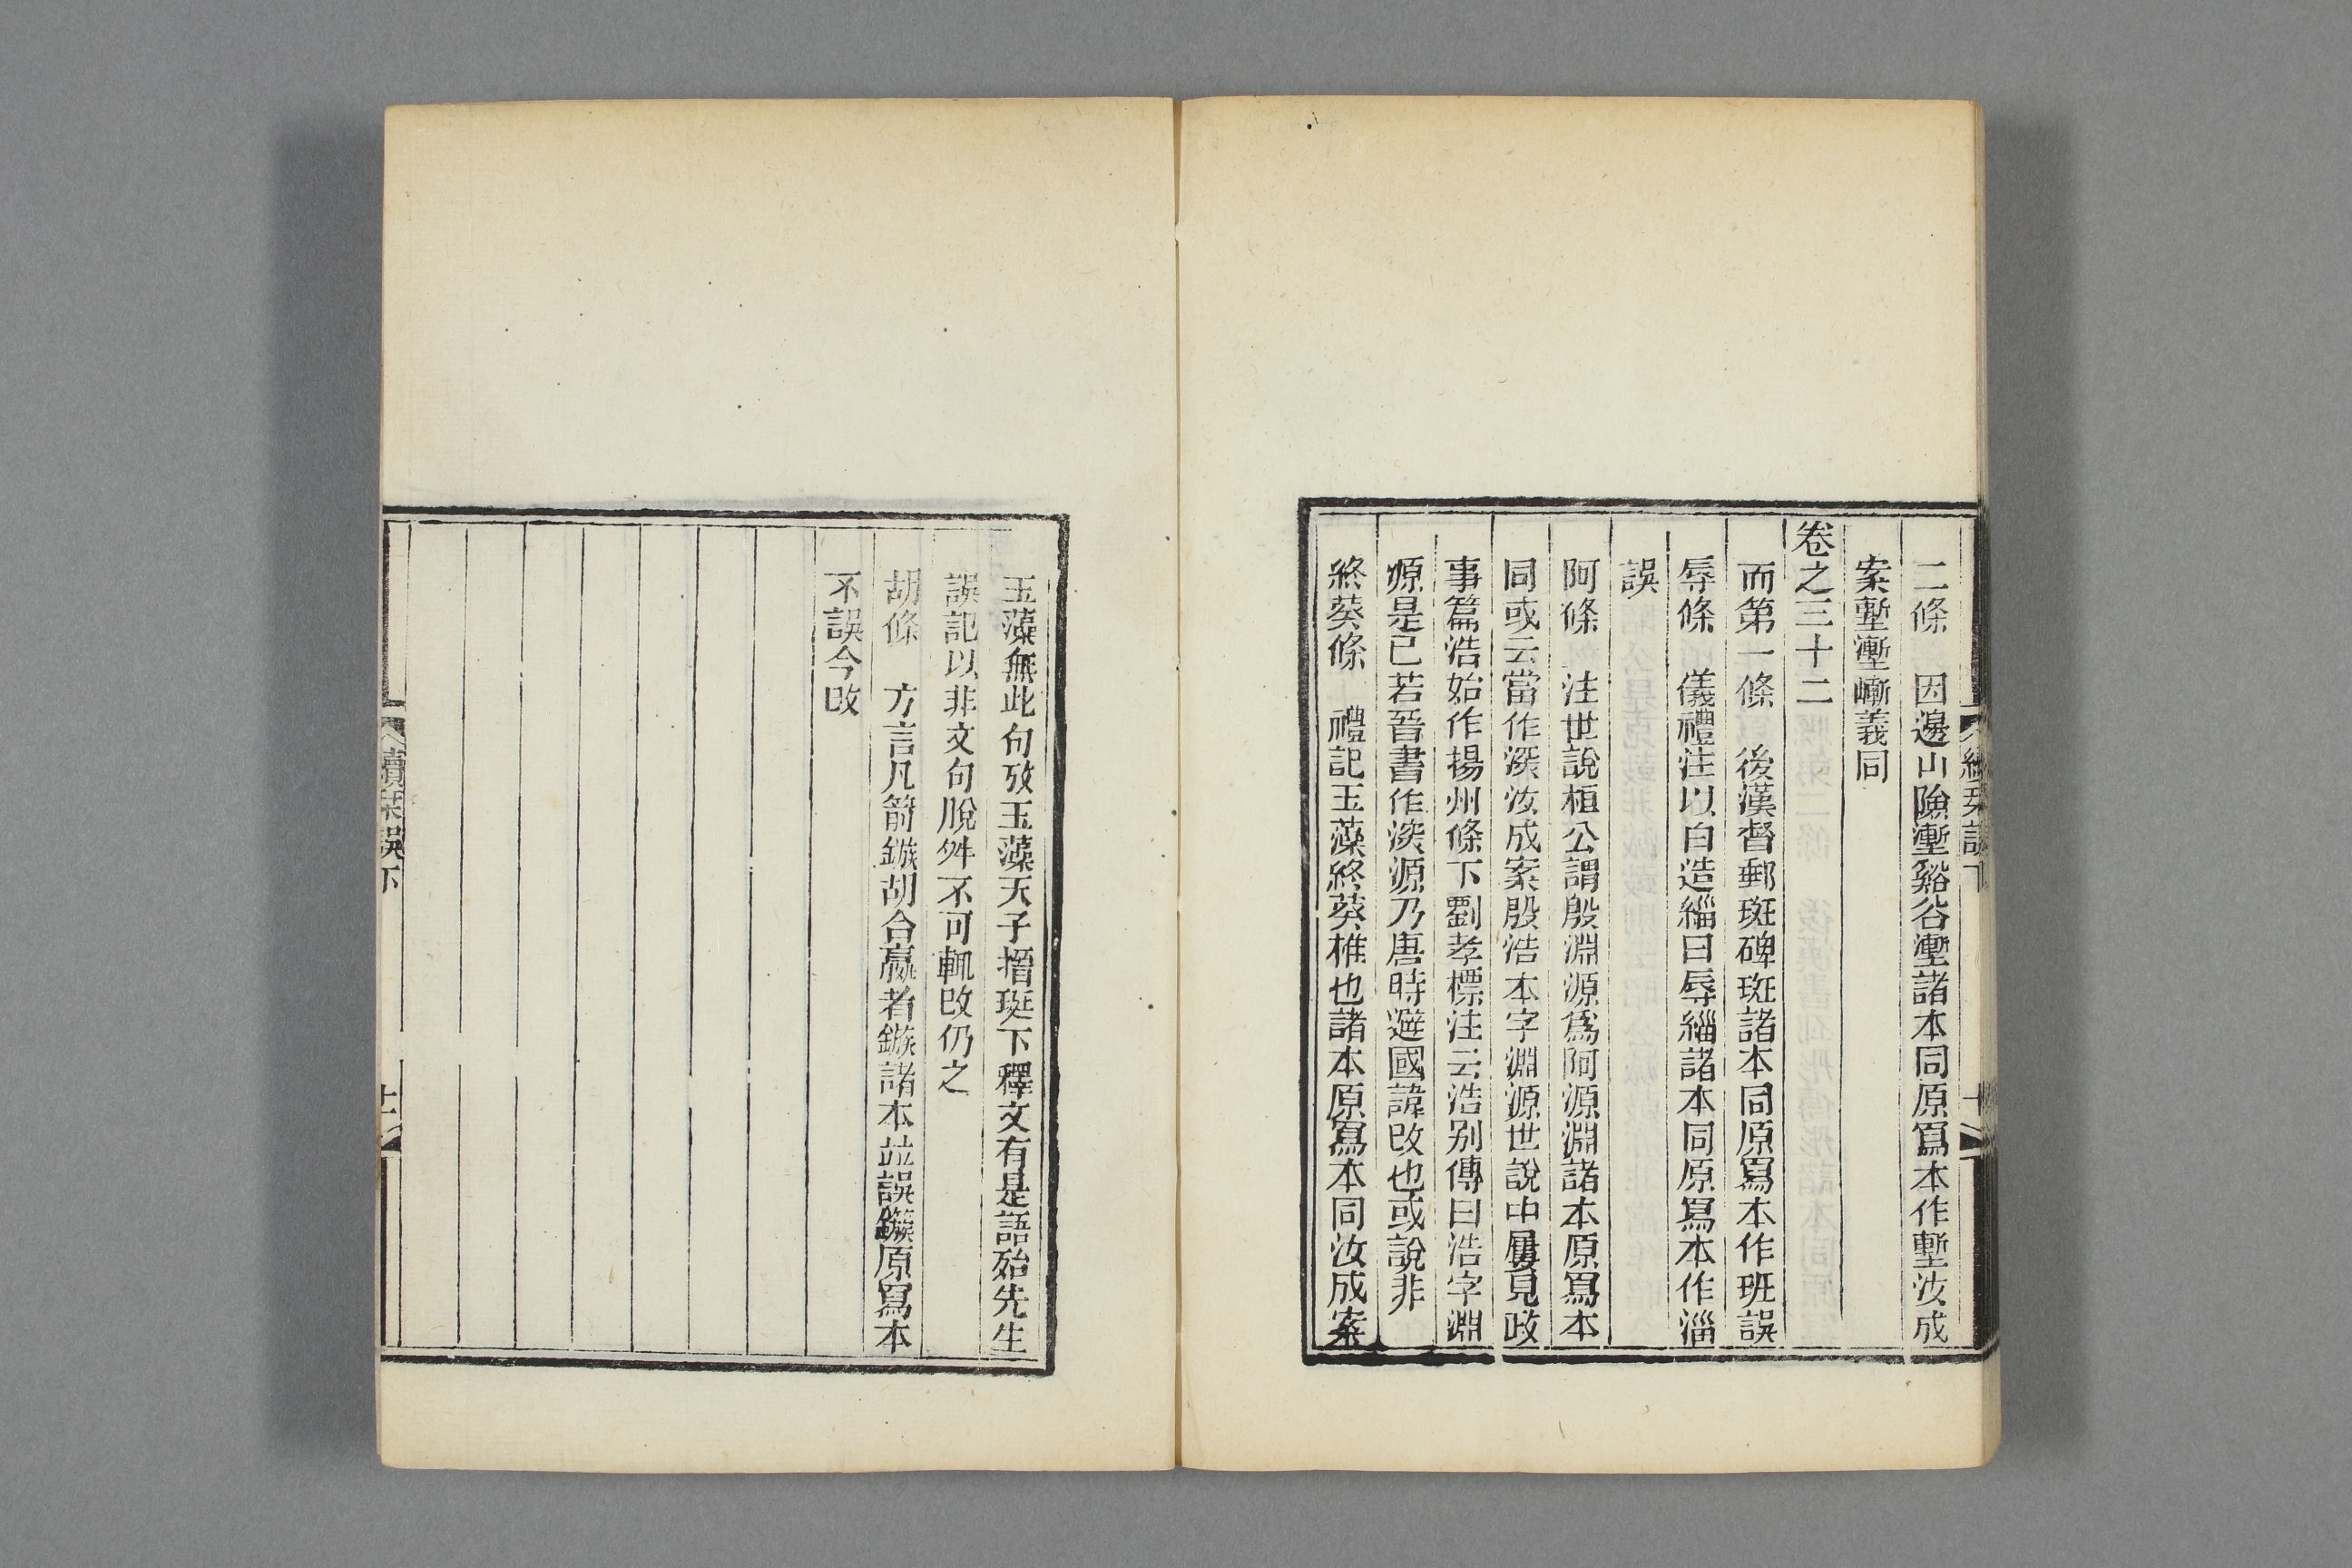 二條　因邊山險壍谿谷壍諸本同原寫本作塹汝成
案塹壍嶃義同
卷之三十二
而第一條　後漢督郵斑碑斑諸本同原寫本作班誤
辱條　儀禮注以白造緇曰辱緇諸本同原寫本作淄
誤
阿條　注世說桓公謂殷淵源爲阿源淵諸本原寫本
同或云當作深汝成案殷浩本字淵源世說中屢見政
事篇浩始作揚州條下劉孝標注云浩別傳曰浩字淵
源是已若晉書作深源乃唐時避國諱改也或說非
終葵條　禮記玉藻終葵椎也諸本原寫本同汝成案
玉藻無此句攷玉藻天子搢珽下釋文有是語殆先生
誤記以非文句脫舛不可輒改仍之
胡條　方言凡箭鏃胡合嬴者鏃諸本並誤鏃原寫本
不誤今改
續栞誤下
十一